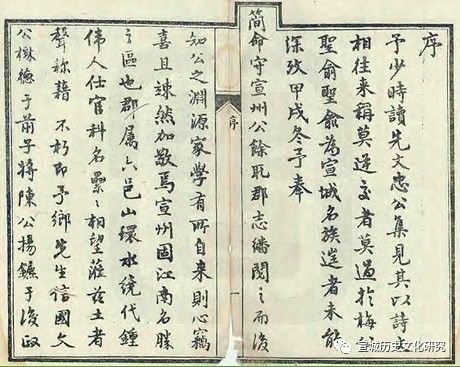 序
予少時讀先文忠公集見其以詩文
相往来稱莫逆交者莫過於梅公
聖俞聖俞為宣城名族邇者未能
深攷甲戌冬予奉
簡命守宣州公餘取郡志繙閱之而後
序
一
知公之淵源家學有所自来則心竊
喜且竦然加敬焉宣州固江南名勝
之區也郡属六邑山環水绕代鍾
偉人仕宦科名纍々相望蒞兹土者
聲称藉 不朽即予鄉先生信國文
公樹德于前子將陳公揚鑣于後政
宣城历史文化研究